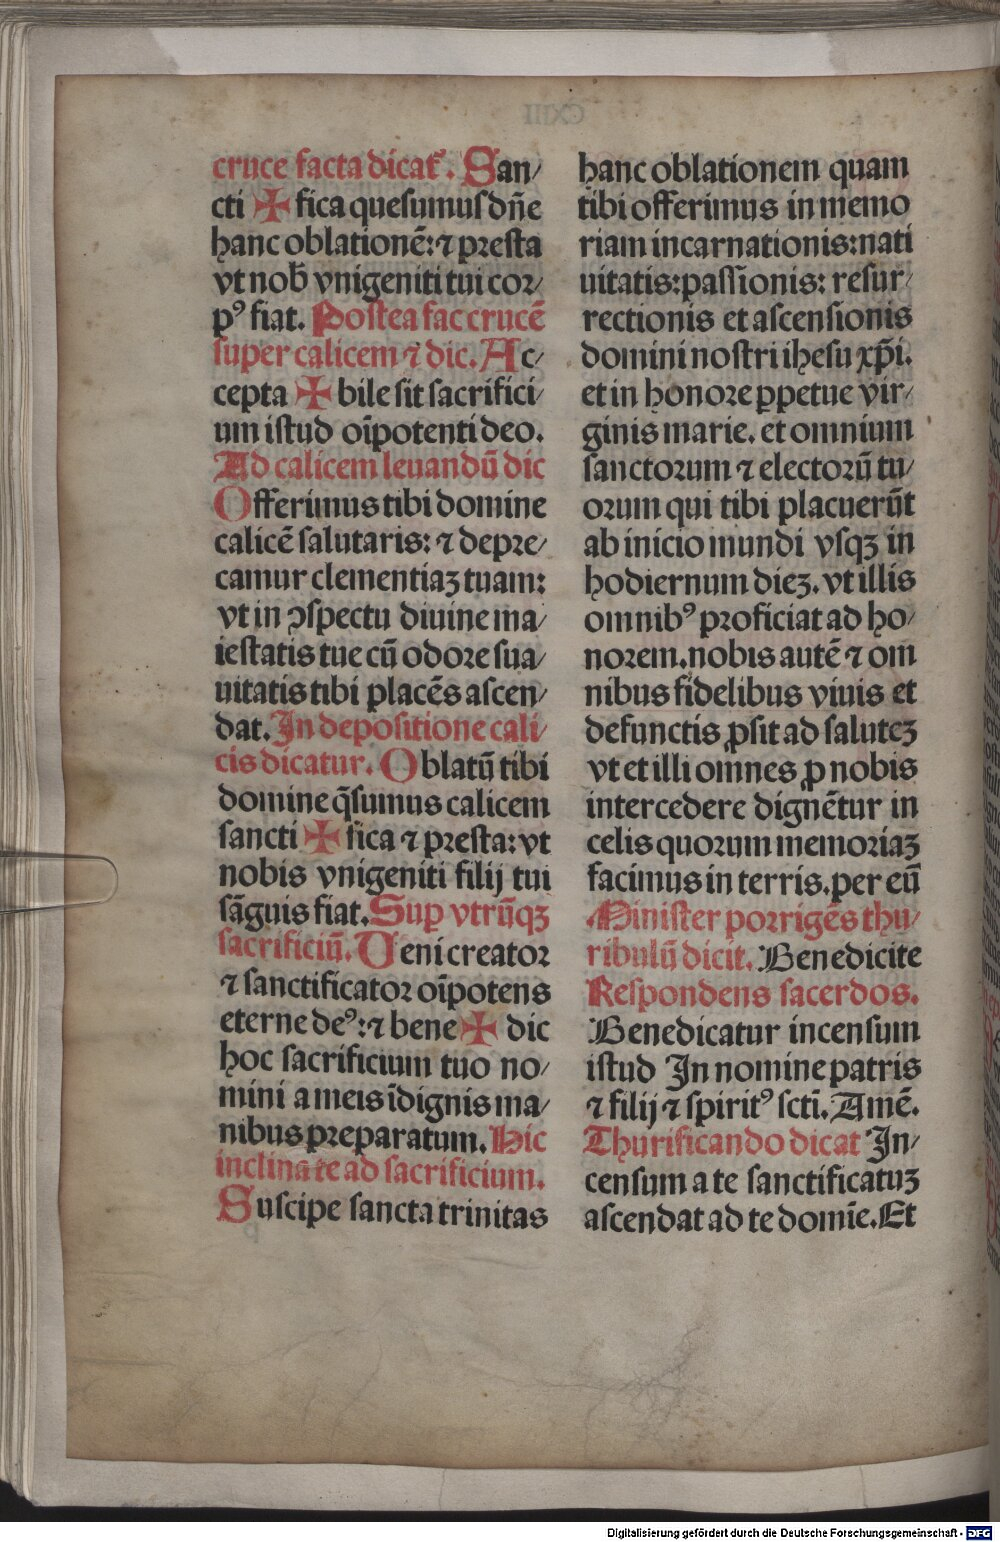 cruce facta dicat᷑. San/
cti ✠ fica quesumus dn̄e
hanc oblationē: ⁊ presta
vt nob̄ vnigeniti tui cor/
pꝰ fiat. Postea fac crucē
super calicem ⁊ dic. Ac/
cepta ✠ bile sit sacrifici/
um istud oīpotenti deo.
Ad calicem leuandū dic
Offerimus tibi domine
calicē salutaris: ⁊ depre/
camur clementiaꝫ tuam:
vt in ꝯspectu diuine ma/
iestatis tue cū odore sua/
uitatis tibi placēs ascen/
dat. In depositione cali/
cis dicatur. Oblatū tibi
domine q̄sumus calicem
sancti ✠ fica ⁊ presta: vt
nobis vnigeniti filij tui
sāguis fiat. Suꝑ vtrūqꝫ
sacrificiū. Ueni creator
⁊ sanctificator oīpotens
eterne deꝰ: ⁊ bene ✠ dic
hoc sacrificium tuo no/
mini a meis īdignis ma/
nibus preparatum. Hic
inclina te ad sacrificium.
Suscipe sancta trinitas
hanc oblationem quam
tibi offerimus in memo
riam incarnationis: nati
uitatis: passionis: resur/
rectionis et ascensionis
domini nostri ihesu xp̄i.
et in honore ꝑpetue vir/
ginis marie. et omnium
sanctorum ⁊ electorū tu/
orum qui tibi placuerūt
ab inicio mundi vsqꝫ in
hodiernum dieꝫ. vt illis
omnibꝰ proficiat ad ho/
norem. nobis autē ⁊ om
nibus fidelibus viuis et
defunctis ꝓsit ad saluteꝫ
vt et illi omnes ꝓ nobis
intercedere dignētur in
celis quorum memoriaꝫ
facimus in terris. per eū
Minister porrigēs thu/
ribulū dicit. Benedicite
Respondens sacerdos.
Benedicatur incensum
istud In nomine patris
⁊ filij ⁊ spiritꝰ scti̅. Amē.
Thurificando dicat In/
censum a te sanctificatuꝫ
ascendat ad te domīe. Et
Digitalisierung gefördert durch die Deutsche Forschungsgemeinschaft - DFG